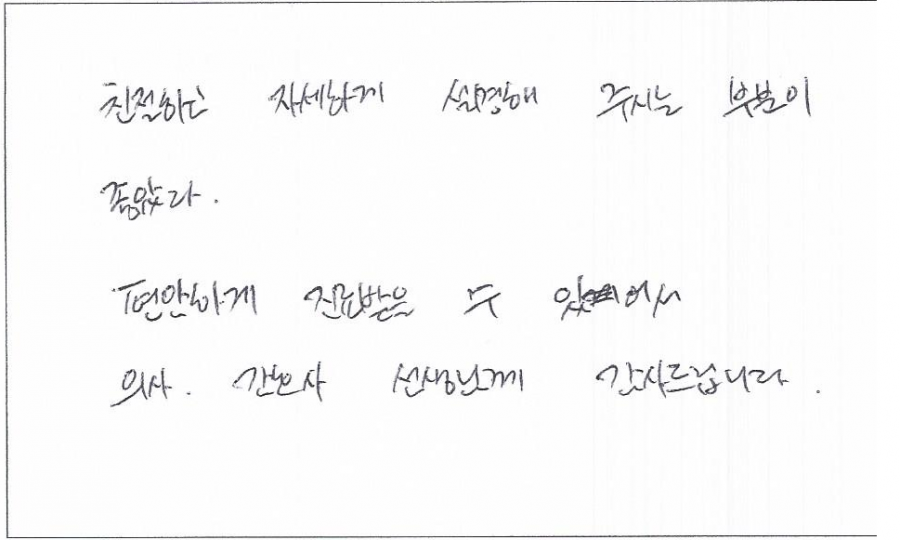 친절하고 자세하게 설명해 주시는 부분이
좋았다.
편안하게 진료받을 수 있어서
의사. 간호사 선생님께 감사드립니다.